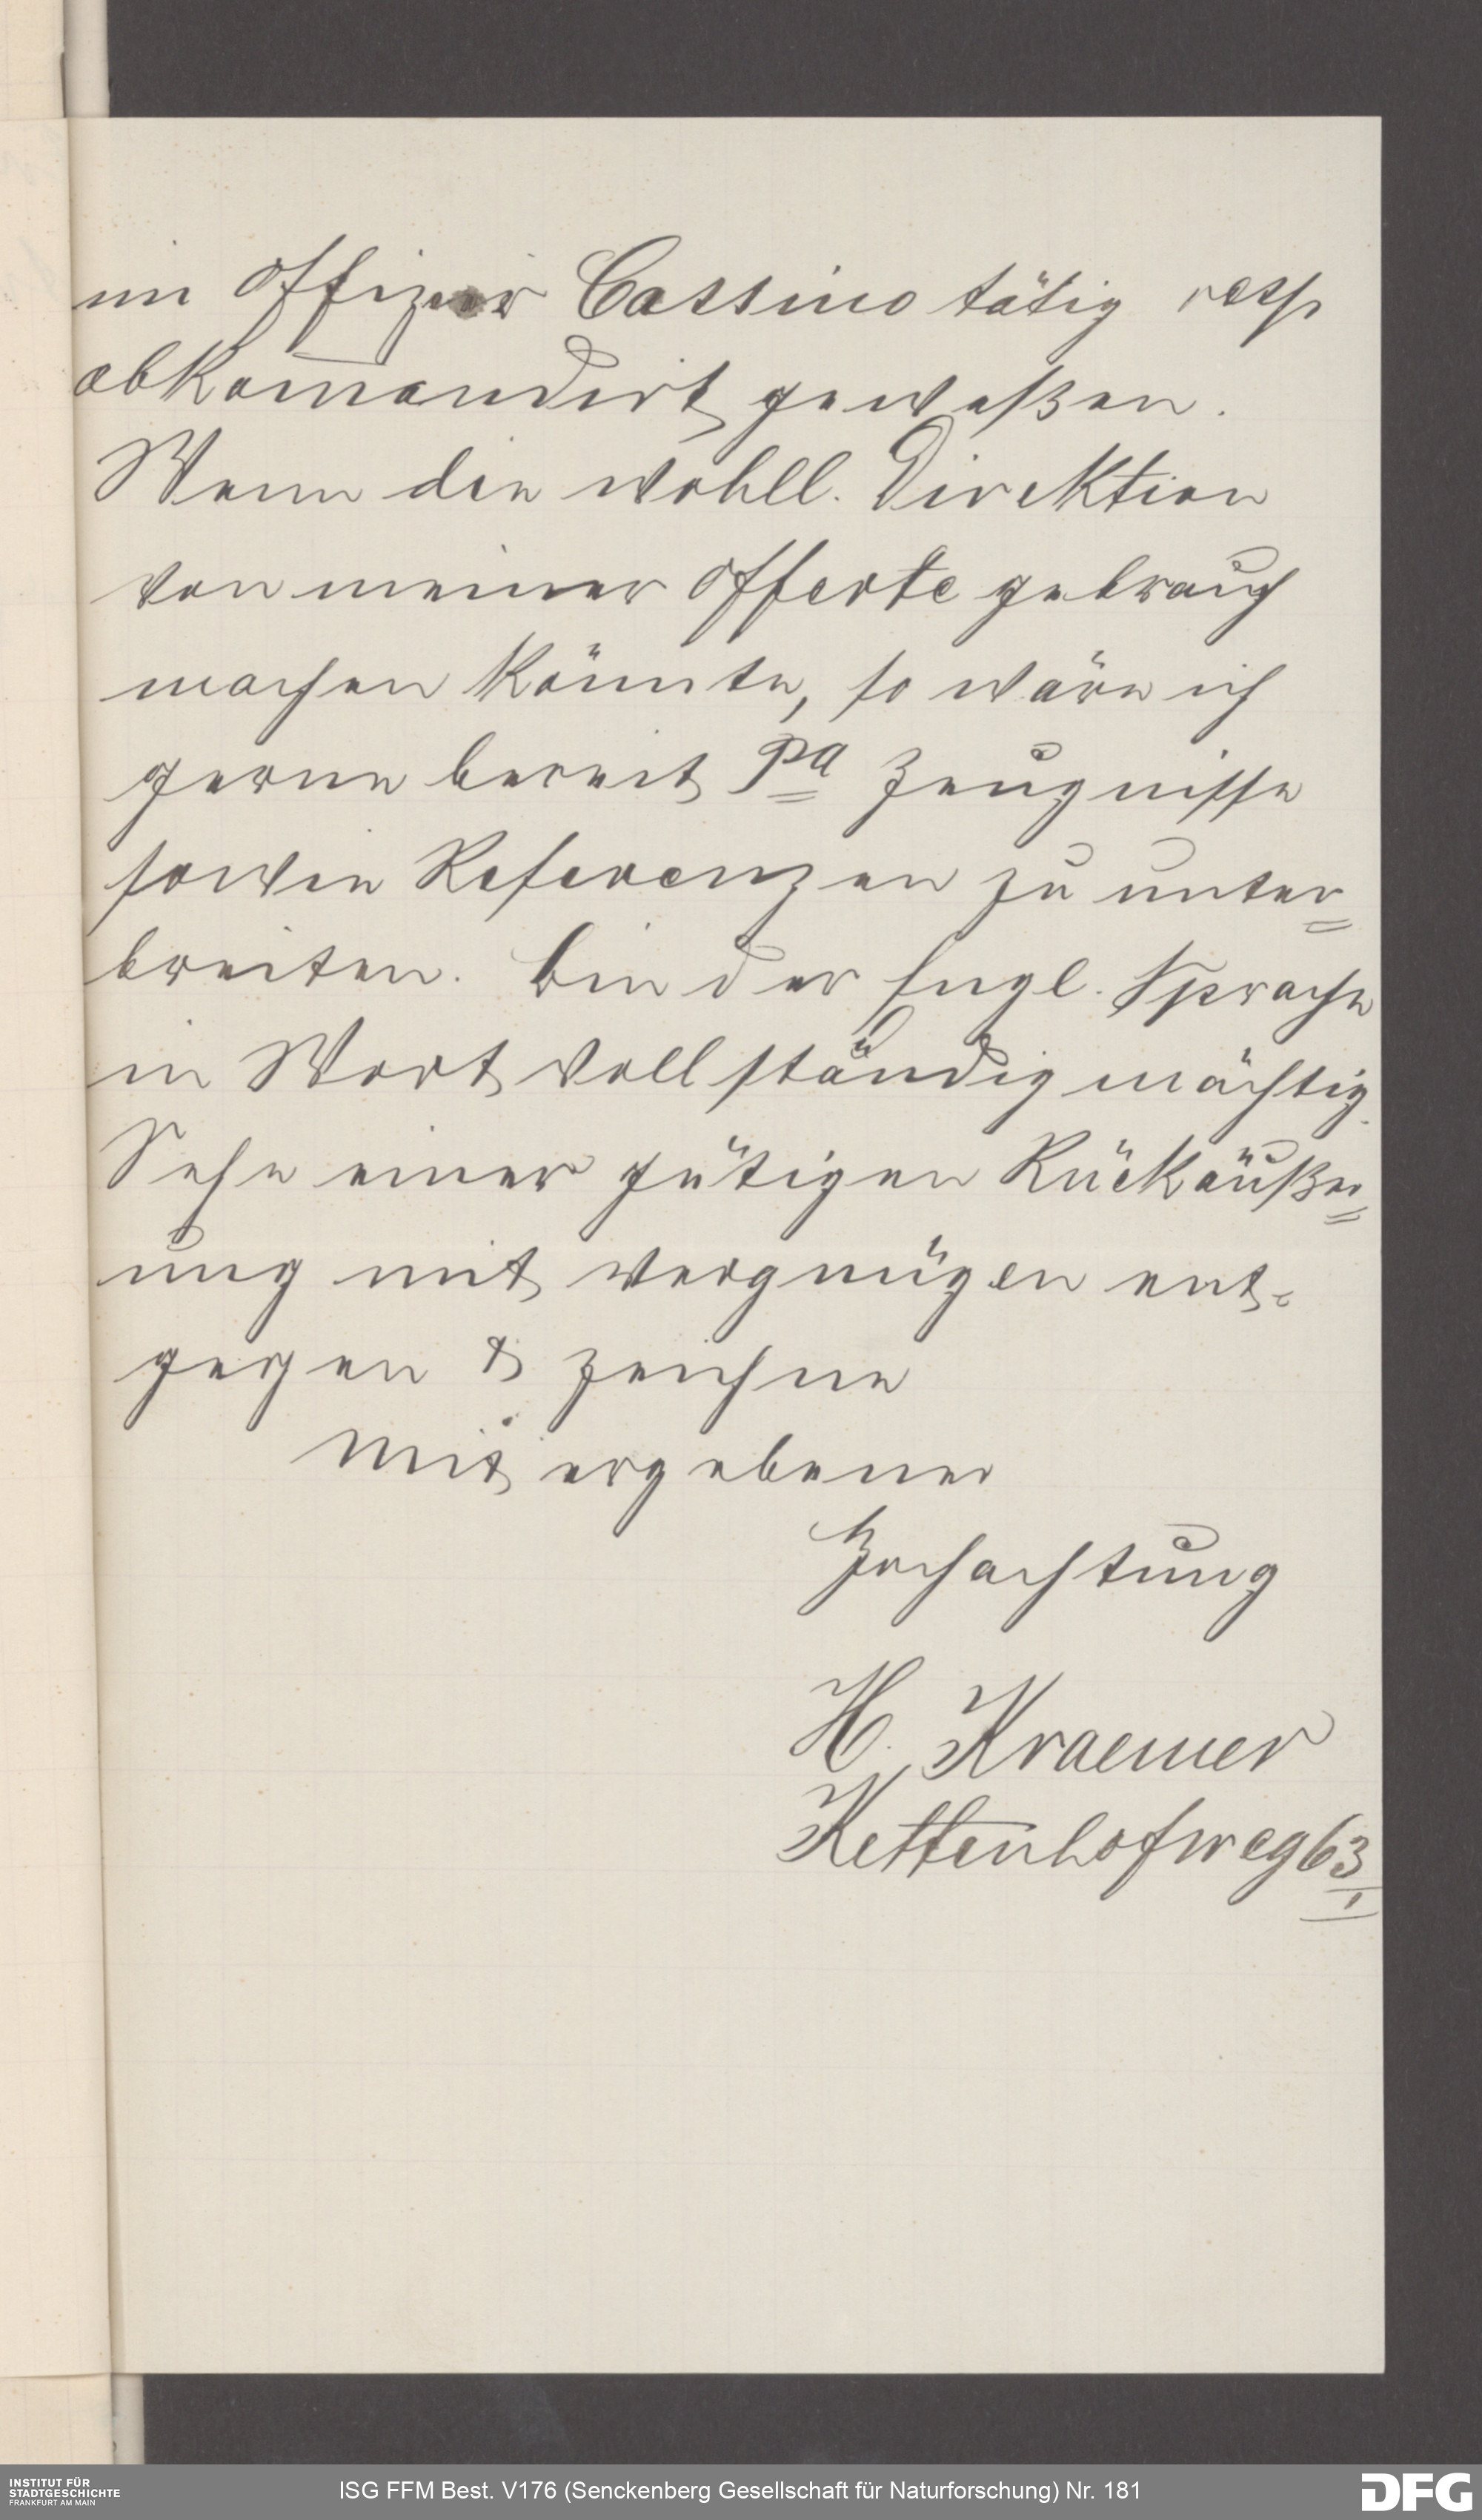 im Offizier Cassino tätig resp
abkom̄andirt geweßen.
Wenn die wohll. Direktion
von meiner Offerte gebrauch
machen könnte, so wäre ich
gerne bereit Pa Zeugnisse
sowie Referenzen zu unter=
breiten. bin der Engl. Sprache
in Wort vollständig mächtig.
Sehe einer gütigen Rückäußer=
ung mit vergnügen ent-
gegen & zeichne
Mit ergebener
Hochachtung
H. Kraemer
Kettenhofweg 63 I
INSTITUT FÜR
STADTGESCHICHTE
FRANKFURT AM MAIN
ISG FFM Best. V176 (Senckenberg Gesellschaft für Naturforschung) Nr. 181
DFG